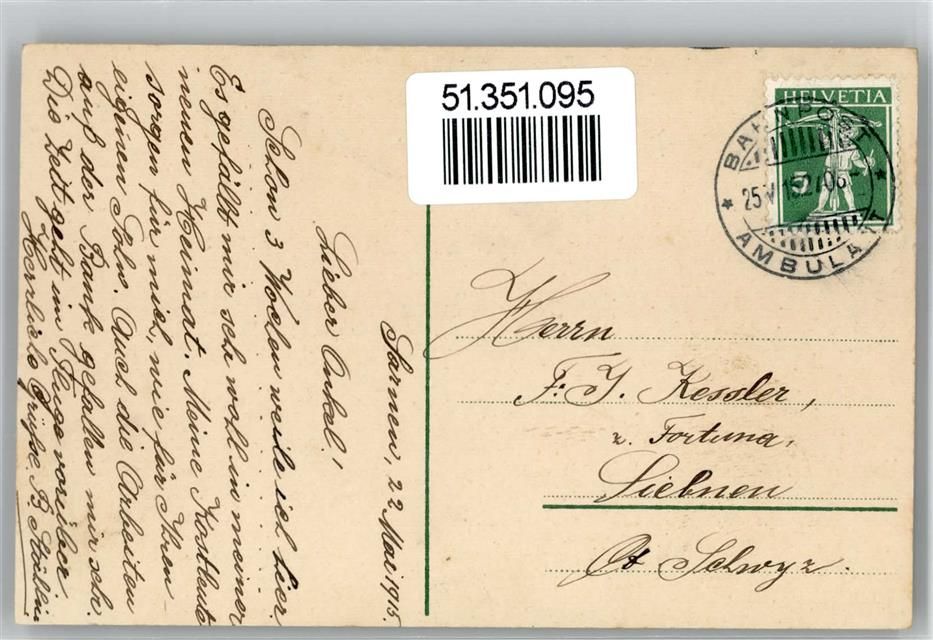 51.351.095
HELVETIA
5
BAHNPOST
25.V.15.
AMBULANT
Sarnen, 22. Mai 1915.
Lieber Onkel!
Schon 3 Wochen weile ich hier.
Es gefällt mir sch wohl in meiner
neuen Heimat. Meine Kostleute
sorgen für mich, wie für Ihren
eigenen Sohn. Auch die Arbeiten
auf der Bank gefallen mir sch.
Die Zeit geht im Fluge vorüber.
Herzliche Grüße.
Herrn
F. J. Kessler,
z. Fortuna,
Siebnen
Ct Schwyz.